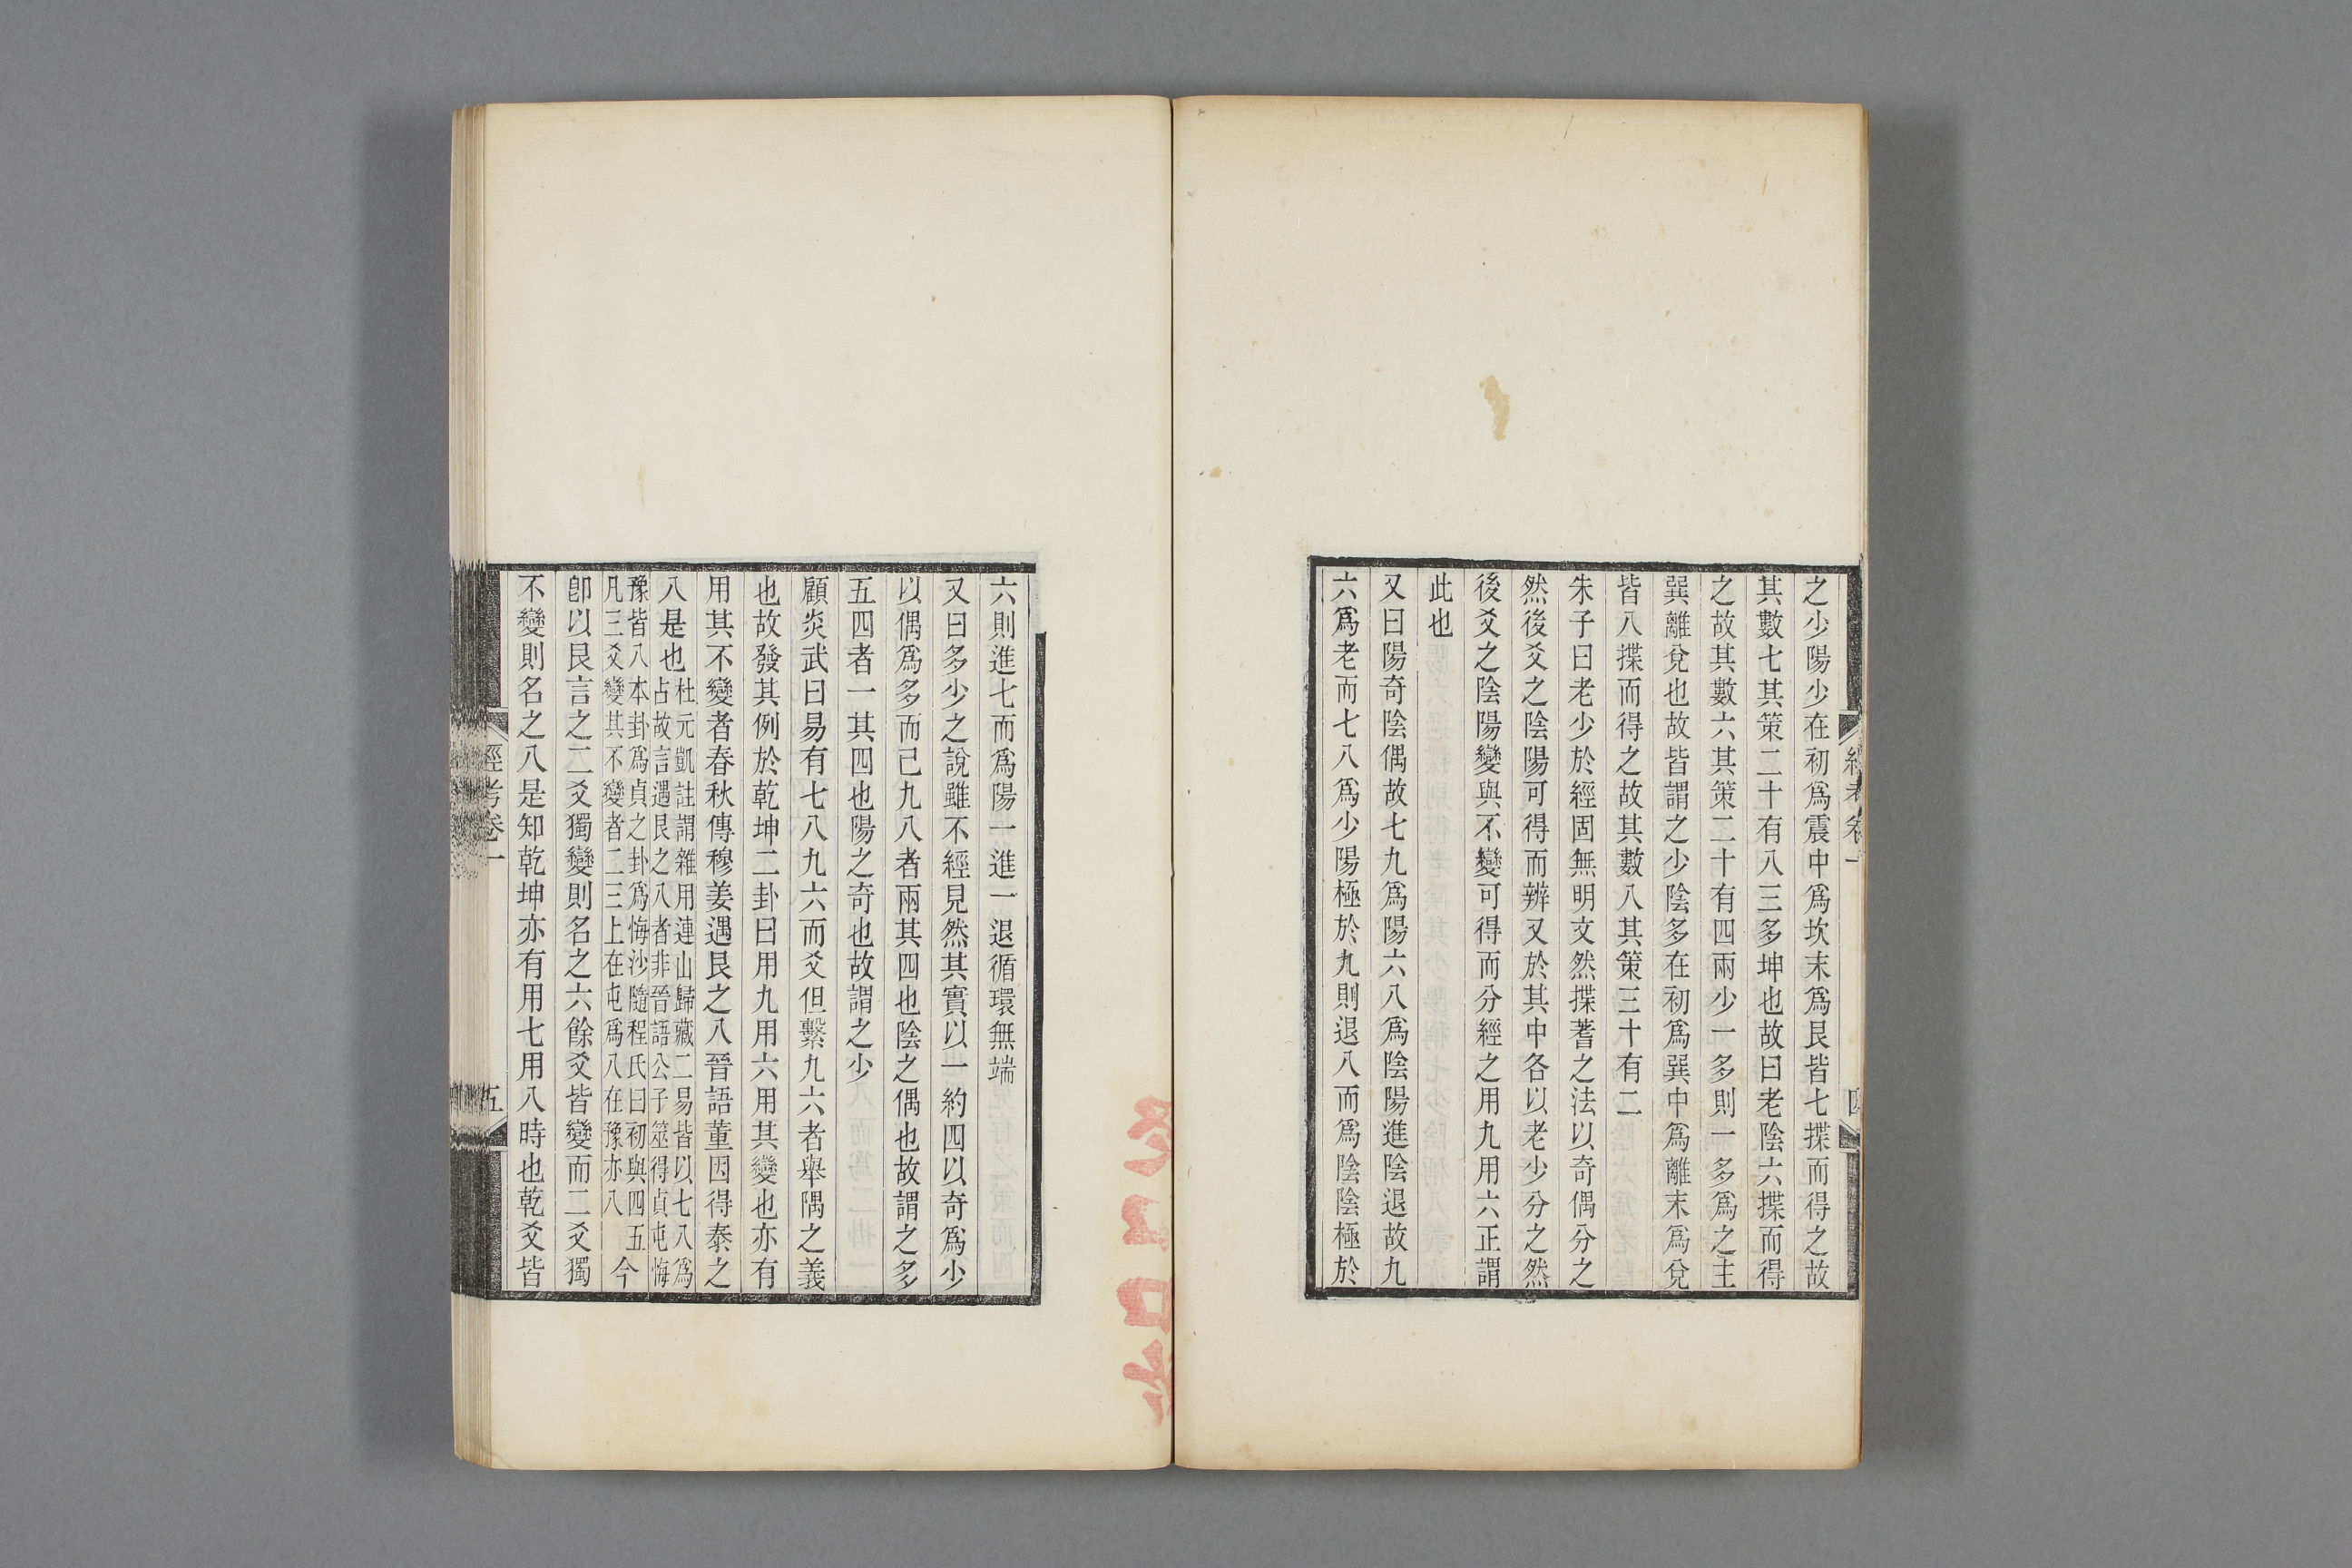 之少陽少在初爲震中爲坎末爲艮皆七揲而得之故
其數七其策二十有八三多坤也故曰老陰六揲而得
之故其數六其策二十有四兩少一多則一多爲之主
巽離兌也故皆謂之少陰多在初爲巽中爲離末爲兌
皆八揲而得之故其數八其策三十有二
朱子曰老少於經固無明文然揲蓍之法以奇偶分之
然後爻之陰陽可得而辨又於其中各以老少分之然
後爻之陰陽變與不變可得而分經之用九用六正謂
此也
又曰陽奇陰偶故七九爲陽六八爲陰陽進陰退故九
六爲老而七八爲少陽極於九則退八而爲陰陰極於
經考卷一
四
六則進七而爲陽一進一退循環無端
又曰多少之說雖不經見然其實以一約四以奇爲少
以偶爲多而已九八者兩其四也陰之偶也故謂之多
五四者一其四也陽之奇也故謂之少
顧炎武曰易有七八九六而爻但繫九六者舉隅之義
也故發其例於乾坤二卦曰用九用六用其變也亦有
用其不變者春秋傳穆姜遇艮之八晉語董因得泰之
八是也
杜元凱註謂雜用連山歸藏二易皆以七八爲
占故言遇艮之八者非晉語公子筮得貞屯悔
豫皆八本卦爲貞之卦爲悔沙隨程氏曰初與四五
凡三爻變其不變者二三上在屯爲八在豫亦八
今
卽以艮言之二爻獨變則名之六餘爻皆變而二爻獨
不變則名之八是知乾坤亦有用七用八時也乾爻皆
經考卷一
五